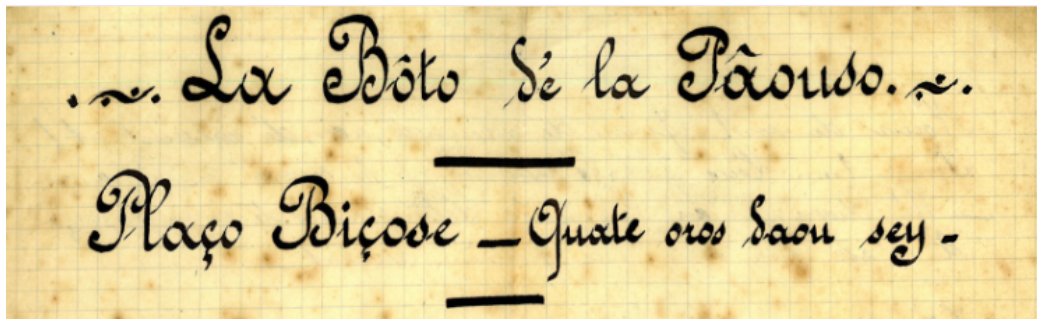 La Bôto dé la Pâouso.
Plaço Biçose — Quate oros daou sey -